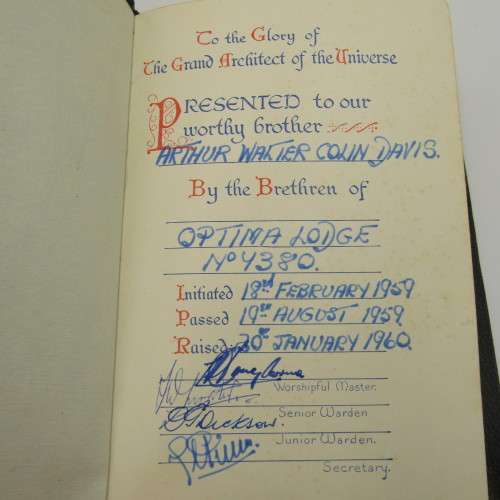 To the Glory of
The Grand Architect of the Universe
PRESENTED to our
worthy brother
ARTHUR WALTER COLIN DAVIS.
By the Brethren of
OPTIMA LODGE
No 4380.
Initiated 18th FEBRUARY 1959
Passed 19th AUGUST 1959
Raised 20th JANUARY 1960.
Worshipful Master.
Senior Warden
D G Dickson.
Junior Warden.
Secretary.